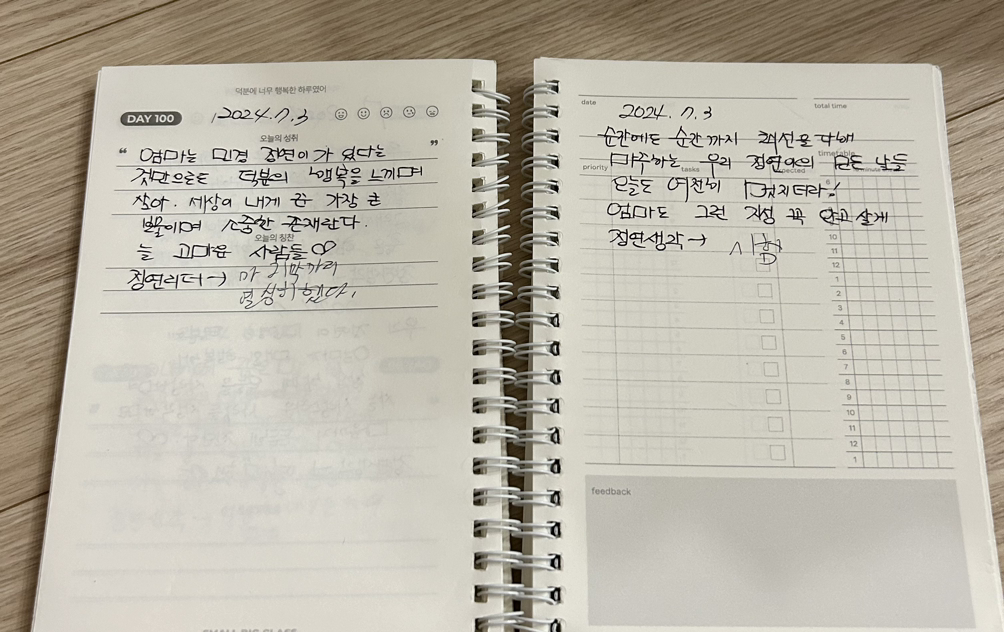 덕분에 너무 행복한 하루였어
DAY 100
2024.7.3
오늘의 성취
“ 엄마는 민경 정연이가 있다는 ”
것만으로도 덕분의 행복을 느끼며
살아. 세상이 내게 준 가장 큰
보물이며 소중한 존재란다.
오늘의 칭찬
늘 고마운 사람들∞
정연리더→ 마지막까지
열심히했다.
date
2024.7.3
total time
순간에도 순간까지 최선을 다해
마주하는 우리 정연아의 모든 날들
priority
tasks
expected
timetable
minute
오늘도 여전히 멋지더라!
엄마도 그런 자세 꼭 안고 살게
정연생각→ 시험
10
11
12
1
2
3
4
5
6
7
8
9
10
11
12
1
feedback